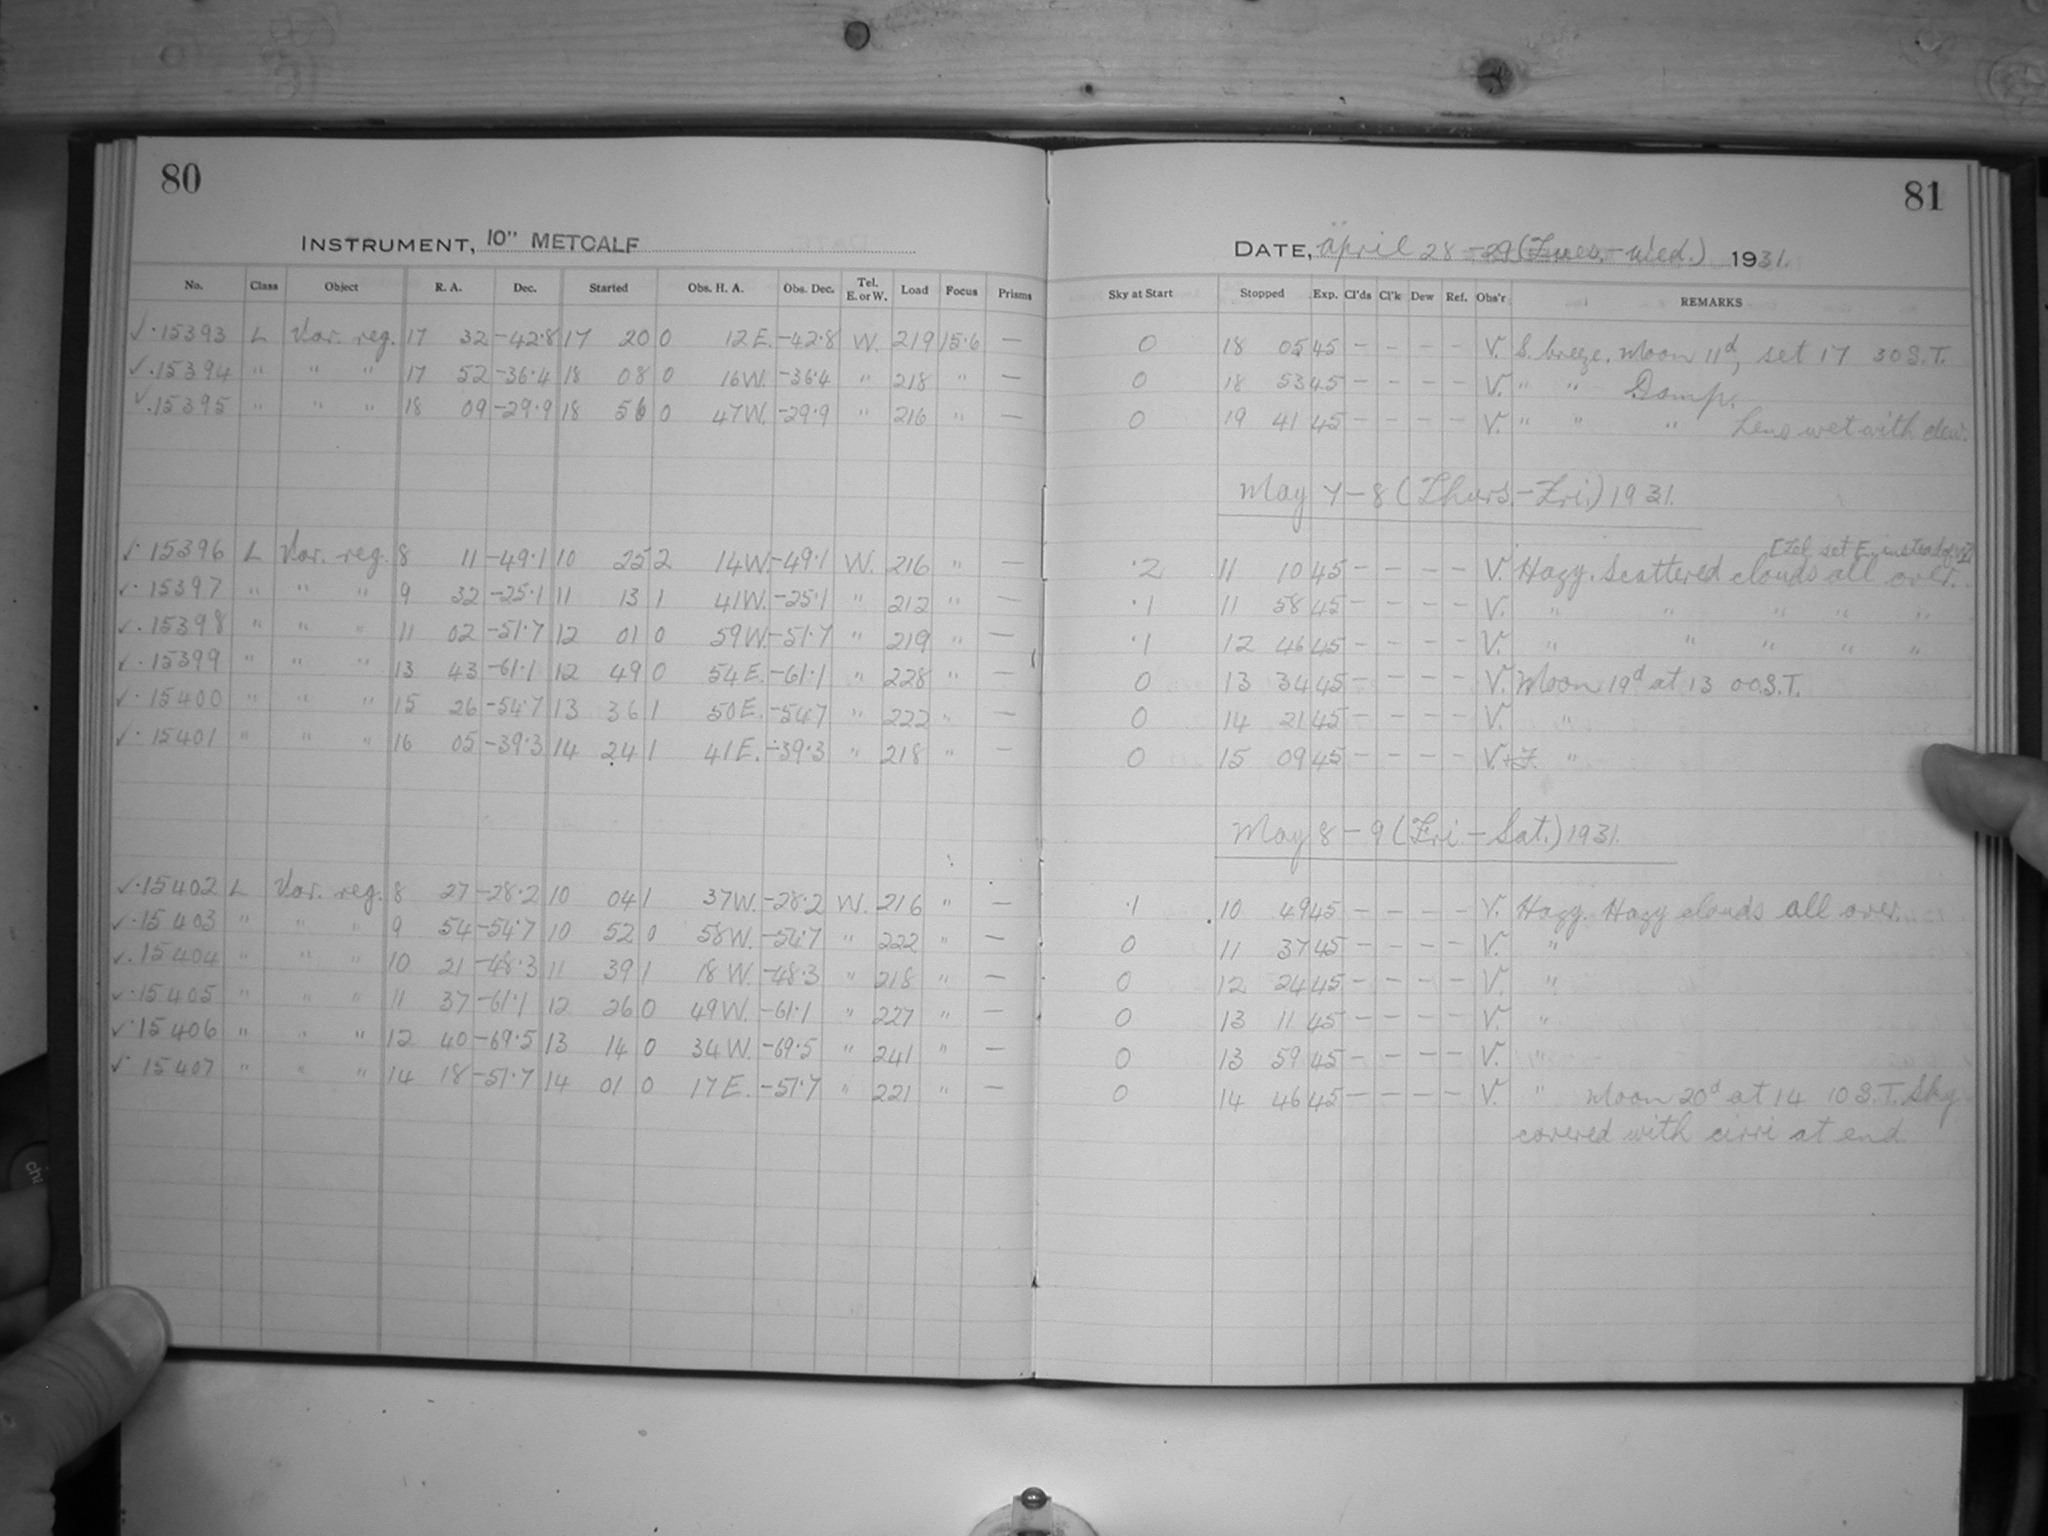 80
INSTRUMENT, 10" METCALF
No. Class Object R. A. Dec. Started Obs. H. A. Obs. Dec. Tel. E. or W. Load Focus Prisms
✓·15393 L Var. reg. 17 32 -42·8 17 20 0 12 E. -42·8 W. 219 15·6 —
✓·15394 " " " 17 52 -36·4 18 08 0 16 W. -36·4 " 218 " —
✓·15395 " " " 18 09 -29·9 18 56 0 47 W. -29·9 " 216 " —
✓·15396 L Var. reg. 8 11 -49·1 10 25 2 14 W. -49·1 W. 216 " —
✓·15397 " " " 9 32 -25·1 11 13 1 41 W. -25·1 " 212 " —
✓·15398 " " " 11 02 -51·7 12 01 0 59 W. -51·7 " 219 " —
✓·15399 " " " 13 43 -61·1 12 49 0 54 E. -61·1 " 228 " —
✓·15400 " " " 15 26 -54·7 13 36 1 50 E. -54·7 " 222 " —
✓·15401 " " " 16 05 -39·3 14 24 1 41 E. -39·3 " 218 " —
✓·15402 L Var. reg. 8 27 -28·2 10 04 1 37 W. -28·2 W. 216 " —
✓·15403 " " " 9 54 -54·7 10 52 0 58 W. -54·7 " 222 " —
✓·15404 " " " 10 21 -48·3 11 39 1 18 W. -48·3 " 218 " —
✓·15405 " " " 11 37 -61·1 12 26 0 49 W. -61·1 " 227 " —
✓·15406 " " " 12 40 -69·5 13 14 0 34 W. -69·5 " 241 " —
✓·15407 " " " 14 18 -51·7 14 01 0 17 E. -51·7 " 221 " —
81
DATE, April 28-29 (Tues.-Wed.) 1931.
Sky at Start Stopped Exp. Cl'ds Cl'k Dew Ref. Obs'r REMARKS
0 18 05 45 — — — — V. S. breeze. Moon 11d, set 17 30 S.T.
0 18 53 45 — — — — V. " " Damp.
0 19 41 45 — — — — V. " " " Lens wet with dew.
May 7-8 (Thurs.-Fri.) 1931.
[Tel. set E. instead of W.]
·2 11 10 45 — — — — V. Hazy. Scattered clouds all over.
·1 11 58 45 — — — — V. " " " " "
·1 12 46 45 — — — — V. " " " " "
0 13 34 45 — — — — V. Moon 19d at 13 00 S.T.
0 14 21 45 — — — — V. "
0 15 09 45 — — — — V.+F. "
May 8-9 (Fri.-Sat.) 1931.
·1 10 49 45 — — — — V. Hazy. Hazy clouds all over.
0 11 37 45 — — — — V. "
0 12 24 45 — — — — V. "
0 13 11 45 — — — — V. "
0 13 59 45 — — — — V. "
0 14 46 45 — — — — V. " Moon 20d at 14 10 S.T. Sky
covered with cirri at end